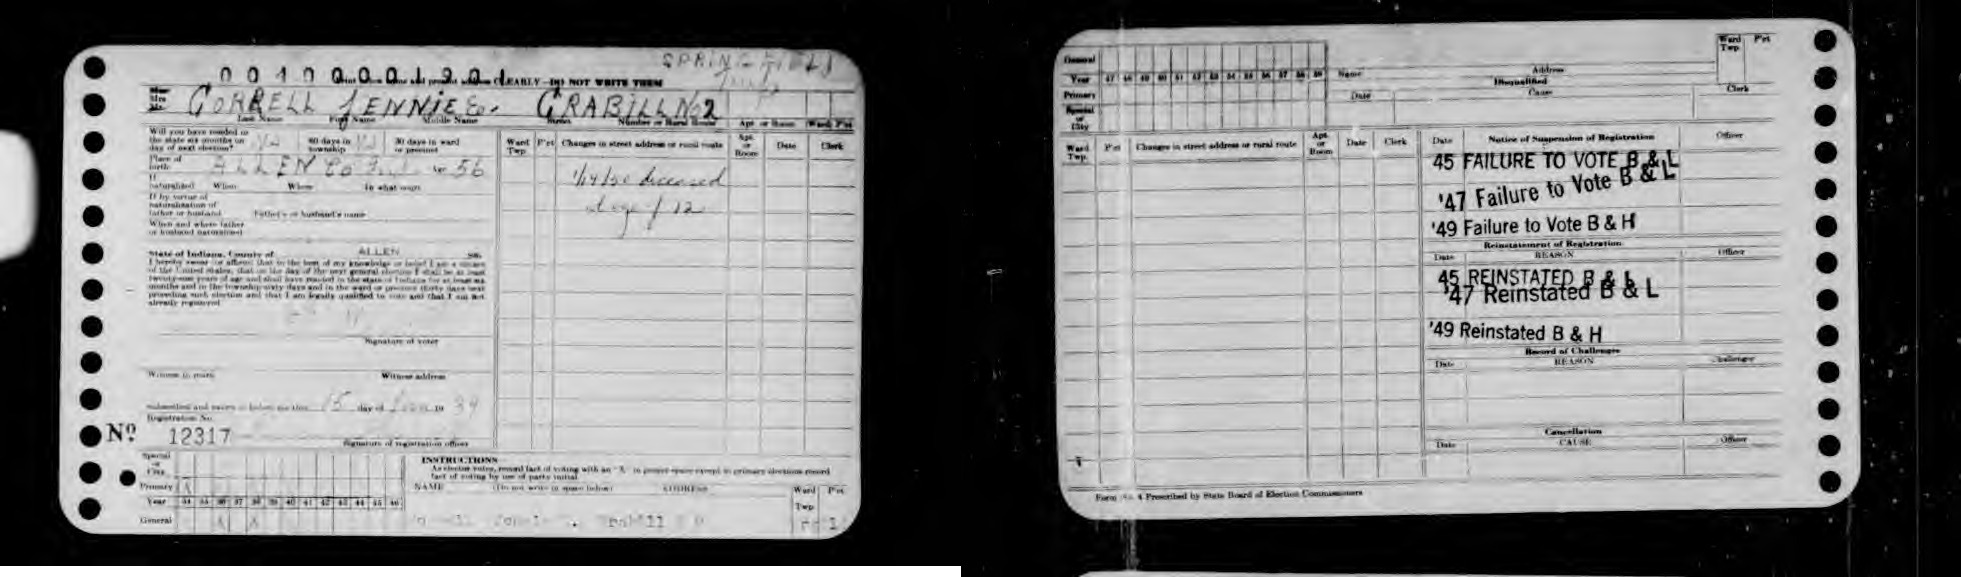 SPRINGFIELD
CLEARLY—DO NOT WRITE THEM
GORRELL JENNIE E. GRABILL No 2
Last Name First Name Middle Name Street Number or Rural Route Apt. or Room Ward P'ct
Will you have resided in
the state six months on
day of next election?
60 days in
township
30 days in ward
or precinct
Place of
birth
ALLEN Co Ind. 56
If
naturalized When Where In what court
If by virtue of
naturalization of
father or husband Father's or husband's name
When and where father
or husband naturalized
State of Indiana, County of ALLEN
I hereby swear (or affirm) that to the best of my knowledge or belief I am a citizen
of the United States, that on the day of the next general election I shall be at least
twenty-one years of age and shall have resided in the state of Indiana for at least six
months and in the township sixty days and in the ward or precinct thirty days next
preceding such election and that I am legally qualified to vote and that I am not
already registered
Signature of voter
Witness to mark Witness address
Subscribed and sworn to before me this 15 day of 19 34
Registration No.
Nº 12317
Signature of registration officer
Ward
Twp.
P'ct
Changes in street address or rural route
Apt.
or
Room
Date
Clerk
deceased
age / 12
Special
or
City
Primary
Year 34 35 36 37 38 39 40 41 42 43 44 45 46
General
INSTRUCTIONS
As elector votes, record fact of voting with an "X" in proper space except in primary elections record
fact of voting by use of party initial
NAME (Do not write in space below) ADDRESS
Ward
Twp
P'ct
General
Year 47 48 49 50 51 52 53 54 55 56 57 58 59
Primary
Special
or
City
Name Address
Disqualified
Date Cause Clerk
Ward
Twp
P'ct
Ward
Twp.
P'ct
Changes in street address or rural route
Apt.
or
Room
Date
Clerk
Date Notice of Suspension of Registration Officer
45 FAILURE TO VOTE B & L
'47 Failure to Vote B & L
'49 Failure to Vote B & H
Reinstatement of Registration
Date REASON Officer
45 REINSTATED B & L
'47 Reinstated B & L
'49 Reinstated B & H
Record of Challenges
Date REASON Challenger
Cancellation
Date CAUSE Officer
Form 4 Prescribed by State Board of Election Commissioners